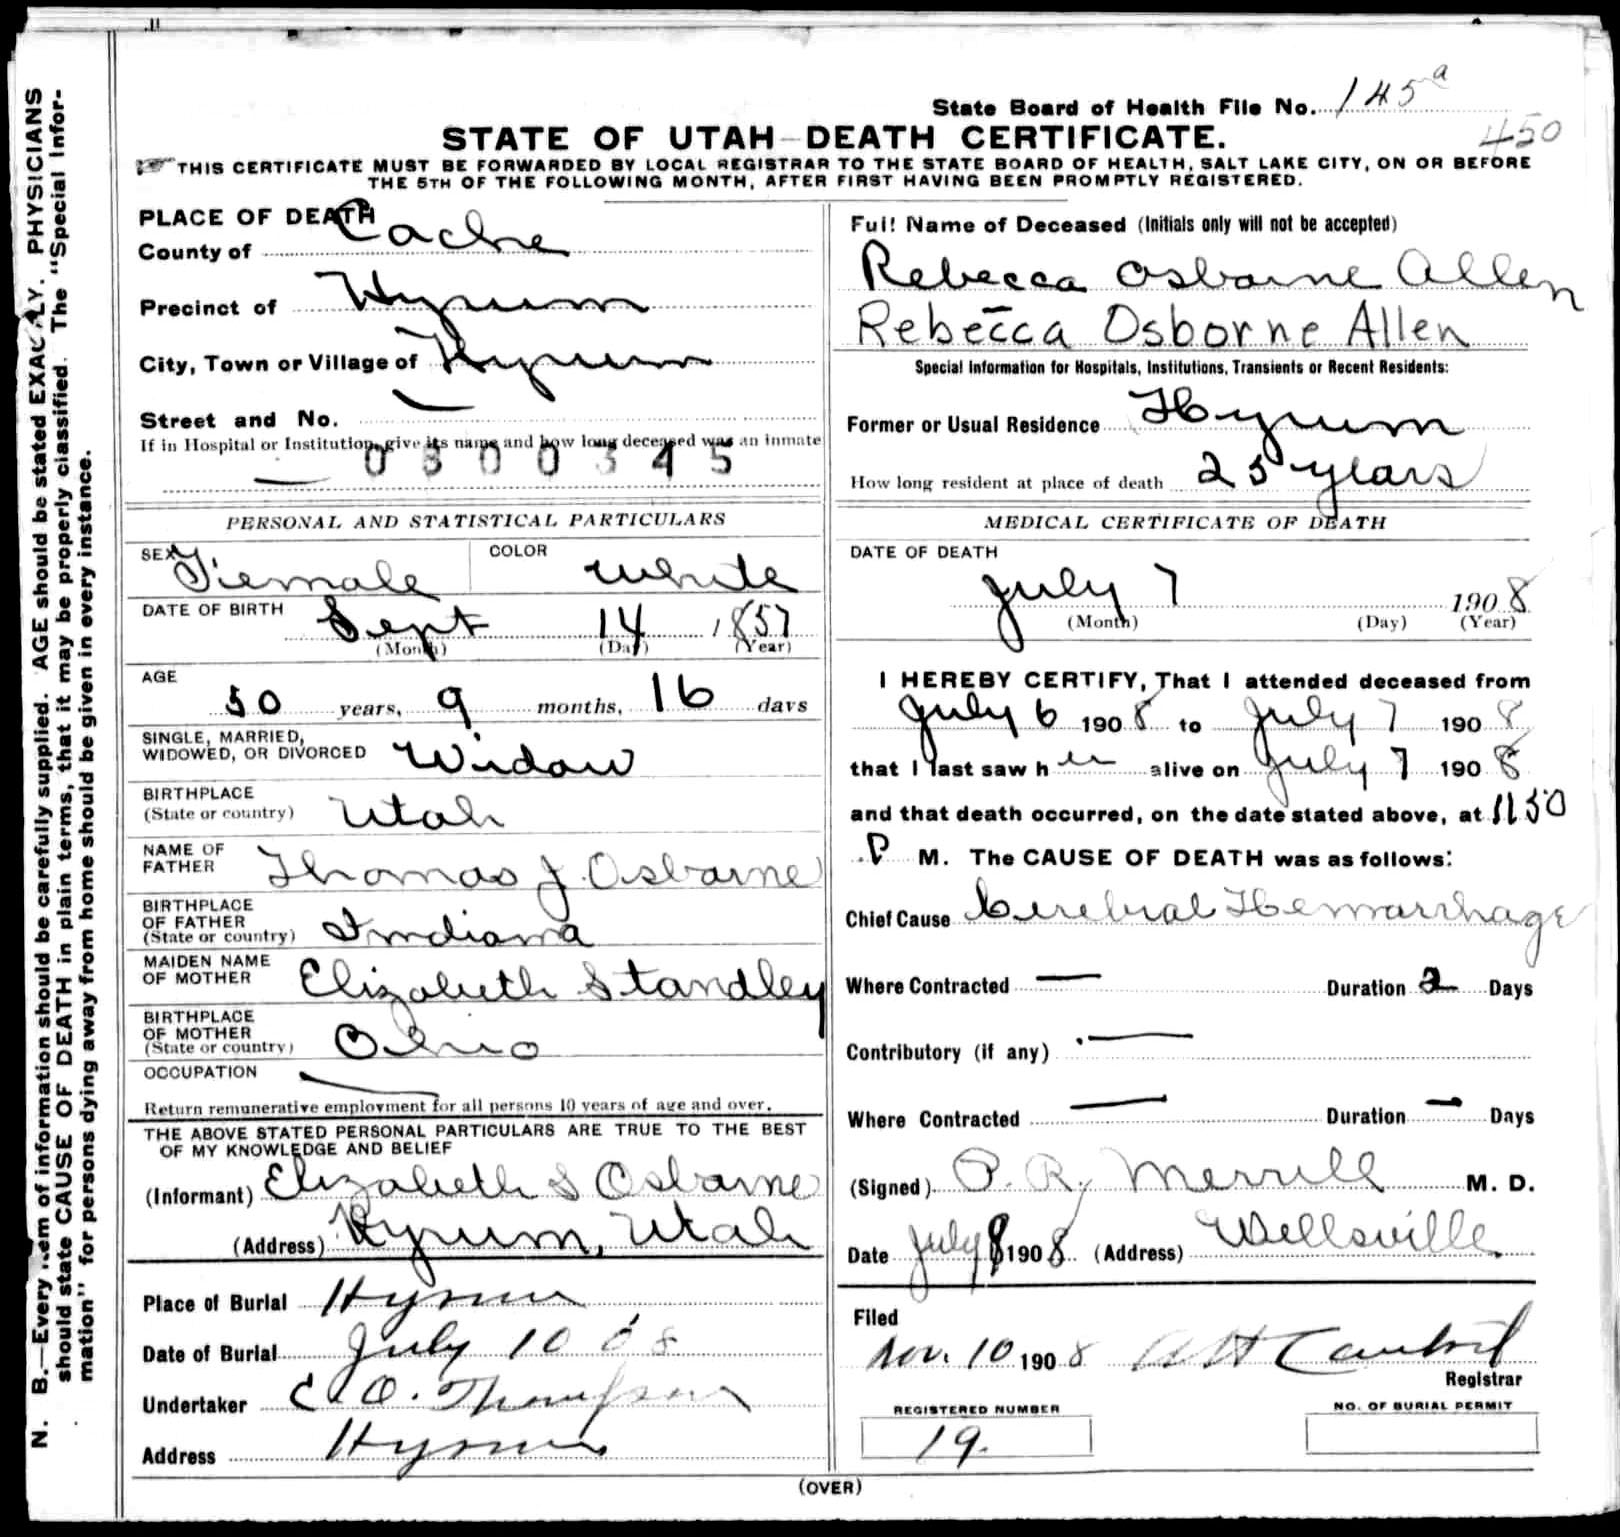 State Board of Health File No. 145a
450
STATE OF UTAH—DEATH CERTIFICATE.
THIS CERTIFICATE MUST BE FORWARDED BY LOCAL REGISTRAR TO THE STATE BOARD OF HEALTH, SALT LAKE CITY, ON OR BEFORE
THE 5TH OF THE FOLLOWING MONTH, AFTER FIRST HAVING BEEN PROMPTLY REGISTERED.
N. B.—Every item of information should be carefully supplied. AGE should be stated EXACTLY. PHYSICIANS
should state CAUSE OF DEATH in plain terms, that it may be properly classified. The "Special Infor-
mation" for persons dying away from home should be given in every instance.
PLACE OF DEATH
County of Cache
Precinct of Hyrum
City, Town or Village of Hyrum
Street and No. —
If in Hospital or Institution, give its name and how long deceased was an inmate
0300345
—
PERSONAL AND STATISTICAL PARTICULARS
SEX Female COLOR White
DATE OF BIRTH Sept 14 1857
(Month) (Day) (Year)
AGE
50 years, 9 months, 16 days
SINGLE, MARRIED,
WIDOWED, OR DIVORCED Widow
BIRTHPLACE
(State or country) Utah
NAME OF
FATHER Thomas J. Osborne
BIRTHPLACE
OF FATHER
(State or country) Indiana
MAIDEN NAME
OF MOTHER Elizabeth Standley
BIRTHPLACE
OF MOTHER
(State or country) Ohio
OCCUPATION —
Return remunerative employment for all persons 10 years of age and over.
THE ABOVE STATED PERSONAL PARTICULARS ARE TRUE TO THE BEST
OF MY KNOWLEDGE AND BELIEF
(Informant) Elizabeth S Osborne
(Address) Hyrum, Utah
Place of Burial Hyrum
Date of Burial July 10 08
Undertaker C. O. Thompson
Address Hyrum
Full Name of Deceased (Initials only will not be accepted)
Rebecca Osborne Allen
Rebecca Osborne Allen
Special Information for Hospitals, Institutions, Transients or Recent Residents:
Former or Usual Residence Hyrum
How long resident at place of death 25 years
MEDICAL CERTIFICATE OF DEATH
DATE OF DEATH
July 7 1908
(Month) (Day) (Year)
I HEREBY CERTIFY, That I attended deceased from
July 6 1908 to July 7 1908
that I last saw her alive on July 7 1908
and that death occurred, on the date stated above, at 1150
P M. The CAUSE OF DEATH was as follows:
Chief Cause Cerebral Hemorrhage
Where Contracted — Duration 2 Days
Contributory (if any) —
Where Contracted — Duration — Days
(Signed) P. R. Merrill M. D.
Date July 8 1908 (Address) Wellsville
Filed
Nov. 10 1908
Registrar
REGISTERED NUMBER
19.
NO. OF BURIAL PERMIT
(OVER)